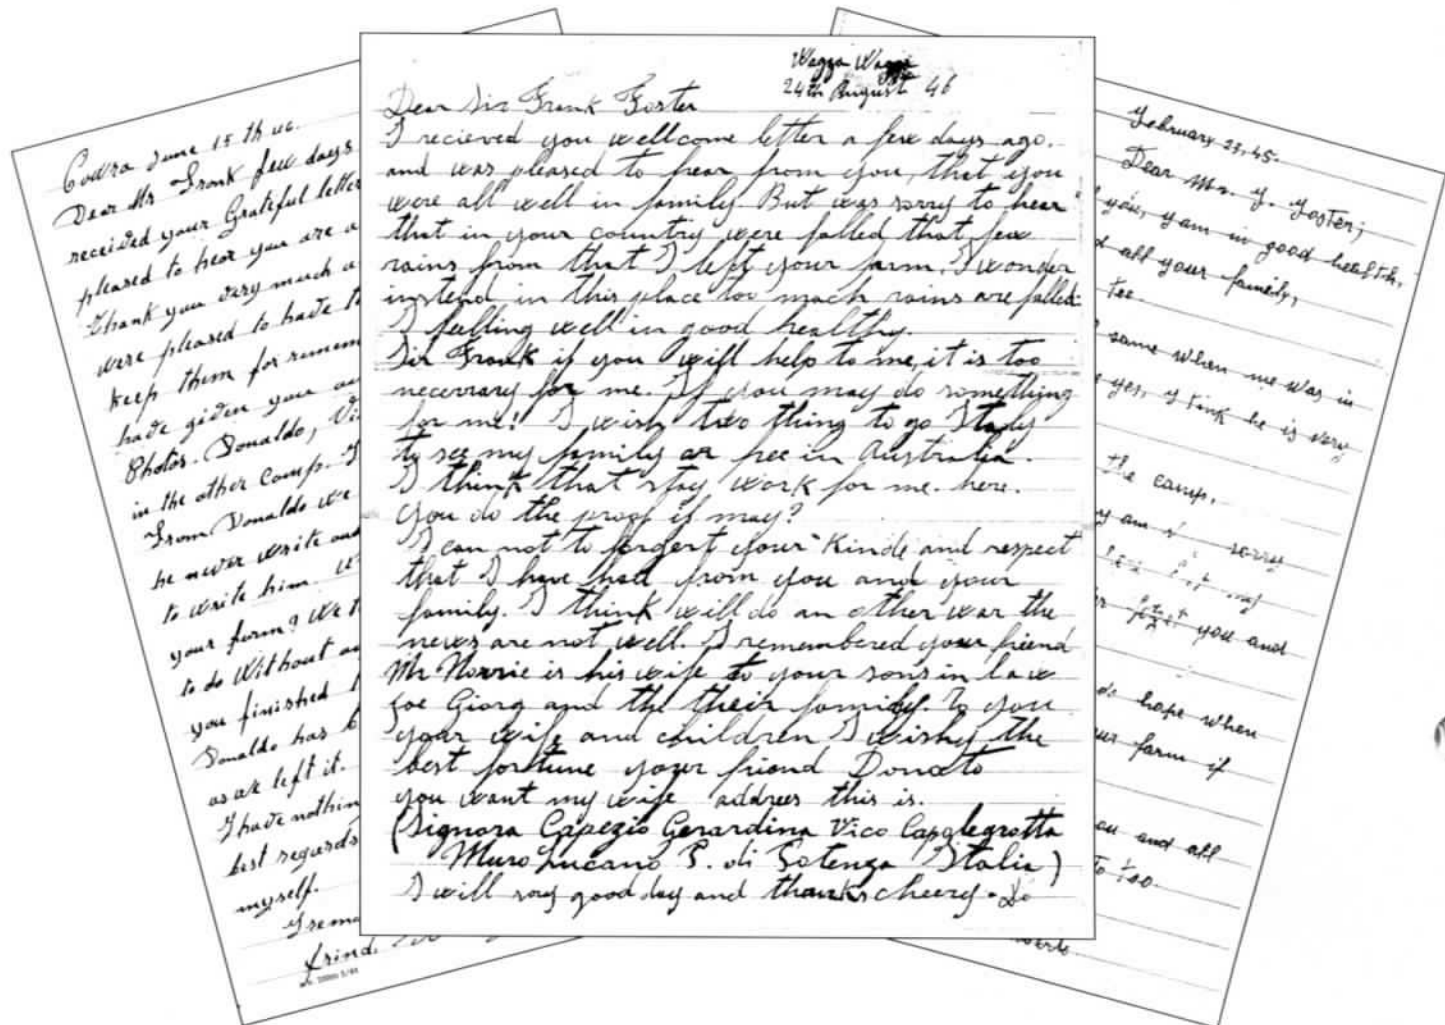 Cowra June 15th
Dear Mr Frank few days
received your Grateful letter
pleased to hear you are a
Thank you very much a
were pleased to have t
keep them for remem
have given you
Photos. Donaldo, Vi
in the other Camp.
From Donaldo we
he never write and
to write him. W
your farm? We t
to do Without a
you finished
Donaldo has b
as we left it.
I have nothin
best regards
myself.
I rema
frind.
Wagga Wagga
24th August 46
Dear Sir Frank Foster
I recieved you wellcome letter a few days ago.
and was pleased to hear from you, that you
were all well in family But was sorry to hear
that in your country were falled that few
rains from that I left your farm. I wonder
instead in this place too mach rains are falled.
I falling well in good healthy.
Sir Frank if you will help to me, it is too
necerrary for me. If you may do something
for me! I wish two thing to go Italy
to see my family or free in Australia.
I think that stay work for me. here.
you do the proof if may?
I can not to forgert your Kinde and respect
that I have had from you and your
family. I think will do an other war the
news are not well. I remembered your friend
Mr Norrie is his wife to your sons in law
Joe Giorg and the their family. To you
your wife and children I wishy the
best fortune your friend Donato
you want my wife addrees this is.
(Signora Capezio Gerardina Vico Capglegrotta
Muro Lucano P. di Potenza Italia)
I will say good day and thanks cheery. Do
February 23, 45.
Dear Mr. Y. Yoster;
you, yam in good health,
d all your family,
too.
same when me was in
yes, y tink he is very
the camp.
y am sorry
you and
hope when
ur farm if
ou and all
To too.